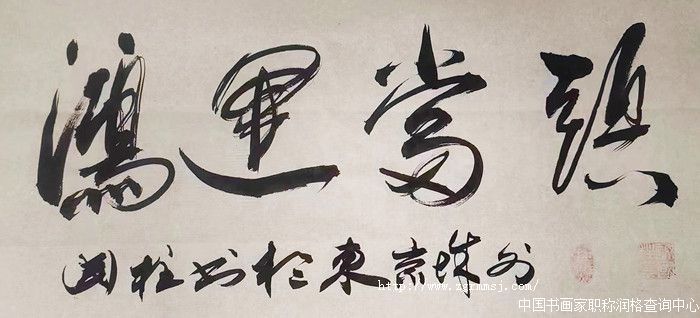 鴻運當頭
国柱书於東京城外
http://www.zgxmmsj.com/
中国书画家职称润格查询中心